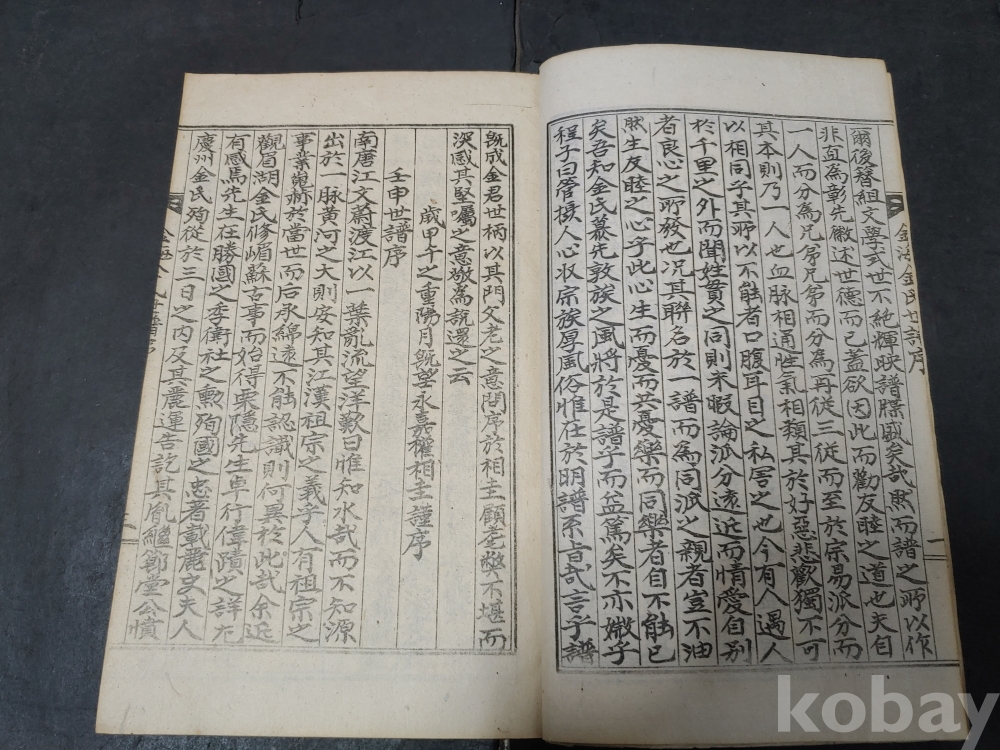 金海金氏世譜序
爾後簪組文學式世不絶輝映譜牒盛矣哉然而譜之所以作
非直爲彰先徽述世德而已蓋欲因此而勸友睦之道也夫自
一人而分爲兄弟兄弟而分爲再從三從而至於宗易派分而
其本則乃一人也血脉相通性氣相類其於好惡悲歡獨不可
以相同乎其所以不能者口腹耳目之私害之也今有人遇人
於千里之外而聞姓貫之同則未暇論派分遠近而情愛自别
者良心之所發也况其聯名於一譜而爲同派之親者豈不油
然生友睦之心乎此心生而憂而共憂樂而同樂者自不能已
矣吾知金氏慕先敦族之風將於是譜乎而益篤矣不亦媺乎
程子曰管攝人心收宗族厚風俗惟在於明譜系旨哉言乎譜
旣成金君世柄以其門父老之意問序於相圭顧耄弊不堪而
深感其堅囑之意敬爲說還之云
歲甲午之重陽月旣望永嘉權相圭謹序
壬申世譜序
南唐江文蔚渡江以一葉亂流望洋歎曰惟知水哉而不知源
出於一脉黄河之大則安知其江漢祖宗之義乎人有祖宗之
事業巍赫於當世而后承綿遠不能認識則何異於此哉余近
觀眉湖金氏修嵋蘇古事而始得栗隱先生卓行偉蹟之詳尤
有感焉先生在勝國之季衛社之勳殉國之忠著載麗史夫人
慶州金氏殉從於三日之内及其麗運告訖其胤繼鄭堂公憤